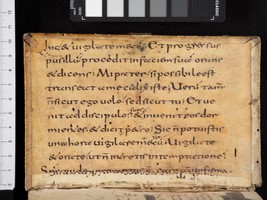 hic & uigilate mecum. Et progressus
pusillũ procidit infaciem suã orans
& dicens; Mi pater si possibile est
transeat a me calix iste; Verũ tam
n̄ sicut ego uolo sed sicut tu; Et ue
nit ad discipulos & inuenit eos dor
mientes & dicit p&ro; Sic n̄ potuistis
una hora uigilare mecũ; Uigilate
& orate ut n̄ intretis in temptatione;